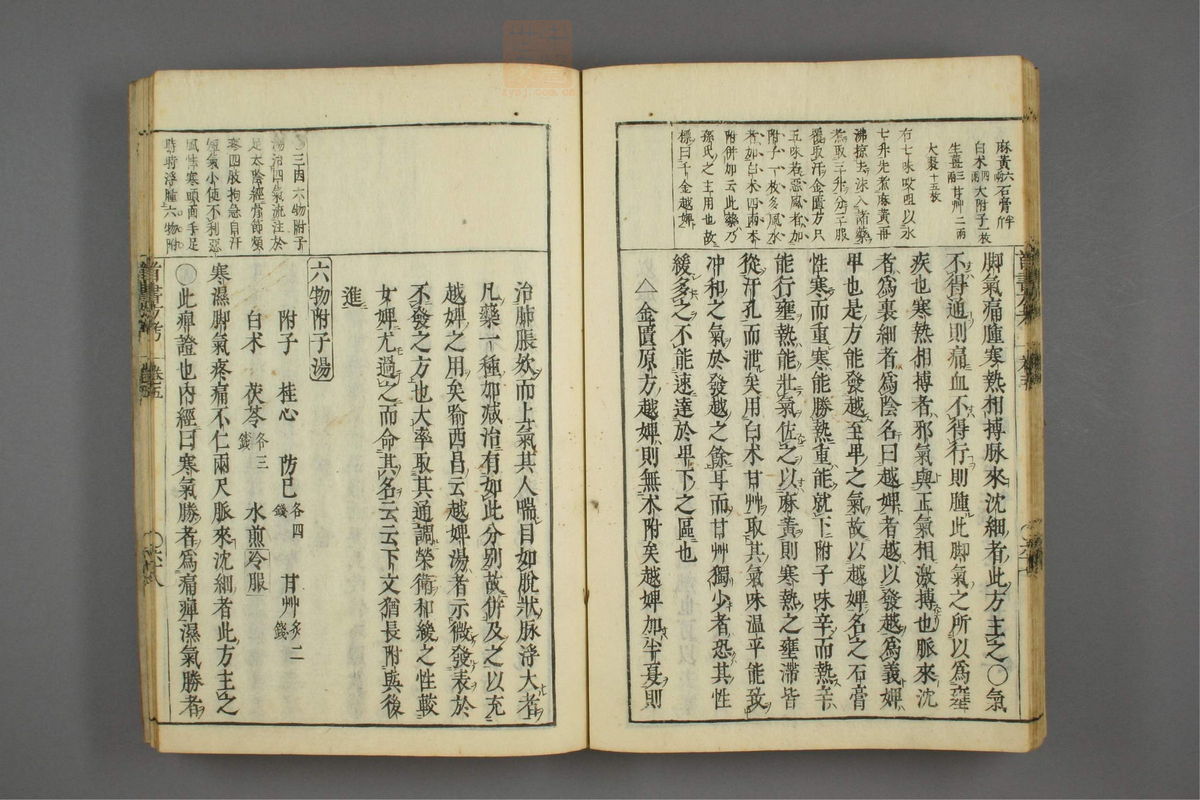 麻黃六兩石膏半斤
白朮四兩大附子一枚
生薑三兩甘艸二兩
大棗十五枚
右七味㕮咀以水
七升先煮麻黃再
沸掠去沫入諸藥
煮取三升分三服
覆取汗金匱方只
五味若惡風者加
附子一枚多風水
者加白朮四兩本
附併加云此藥乃
孫氏之主用也故
標曰千金越婢
脚氣痛腫寒熱相搏脉來沈細者此方主之○氣
不得通則痛血不得行則腫此脚氣之所以爲壅
疾也寒熱相搏者邪氣與正氣相激搏也脈來沈
者爲裏細者爲陰名曰越婢者越以發越爲義婢
卑也是方能發越至卑之氣故以越婢名之石膏
性寒而重寒能勝熱重能就下附子味辛而熱辛
能行壅熱能壯氣佐之以麻黃則寒熱之壅滯皆
從汗孔而泄矣用白朮甘艸取其氣味温平能致
冲和之氣於發越之餘耳而甘艸獨少者恐其性
緩多之不能速達於卑下之區也
△金匱原方越婢則無朮附矣越婢加半夏則
治肺脹欬而上氣其人喘目如脫狀脉浮大者
凡藥一種加減治有如此分別故併及之以充
越婢之用矣喻西昌云越婢湯者示微發表於
不發之方也大率取其通調榮衛和緩之性較
女婢尤過之而命其名云云下文猶長附與後
進
三因六物附子
湯治四氣流注於
足太陰經骨節煩
疼四肢拘急自汗
短氣小便不利惡
風怯寒頭面手足
時時浮腫六物附
六物附子湯
附子 桂心 防已各四錢 甘艸炙二錢
白朮 茯苓各三錢 水煎冷服
寒濕脚氣疼痛不仁兩尺脈來沈細者此方主之
○此痺證也內經曰寒氣勝者爲痛痺濕氣勝者